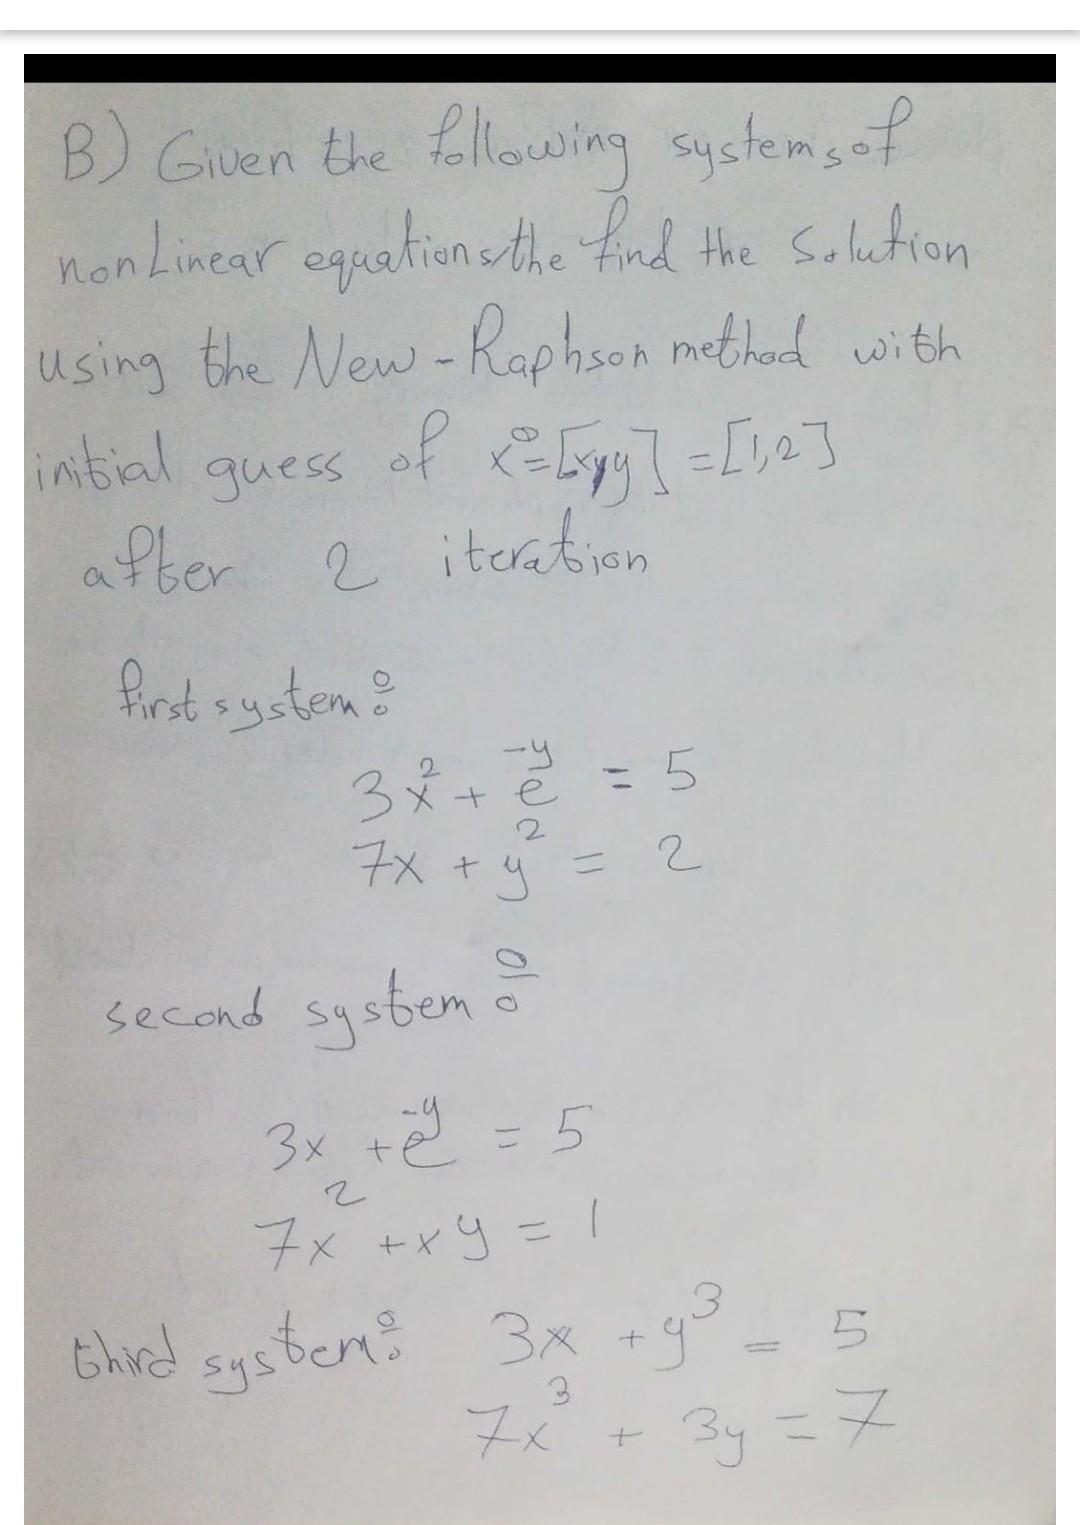 B) Given the following systems of
nonLinear equations, the find the Solution
using the New-Raphson method with
initial guess of x⁰=[x,y] =[1,2]
after 2 iteration
first system:
3x² + e⁻ʸ = 5
7x + y² = 2
second system:
3x + e⁻ʸ = 5
7x² + xy = 1
third system: 3x + y³ = 5
7x³ + 3y = 7